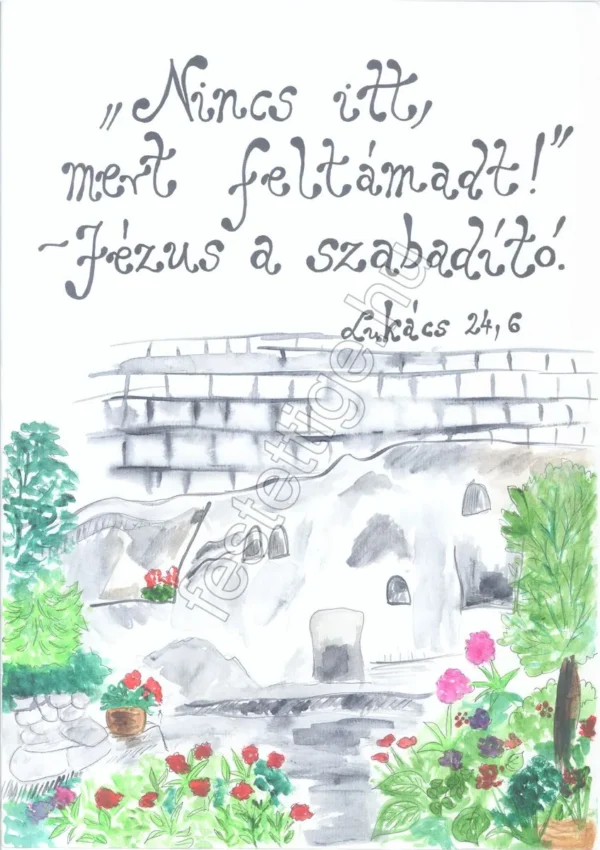 „Nincs itt,
mert feltámadt!”
~Jézus a szabadító.
Lukács 24,6
festettige.hu